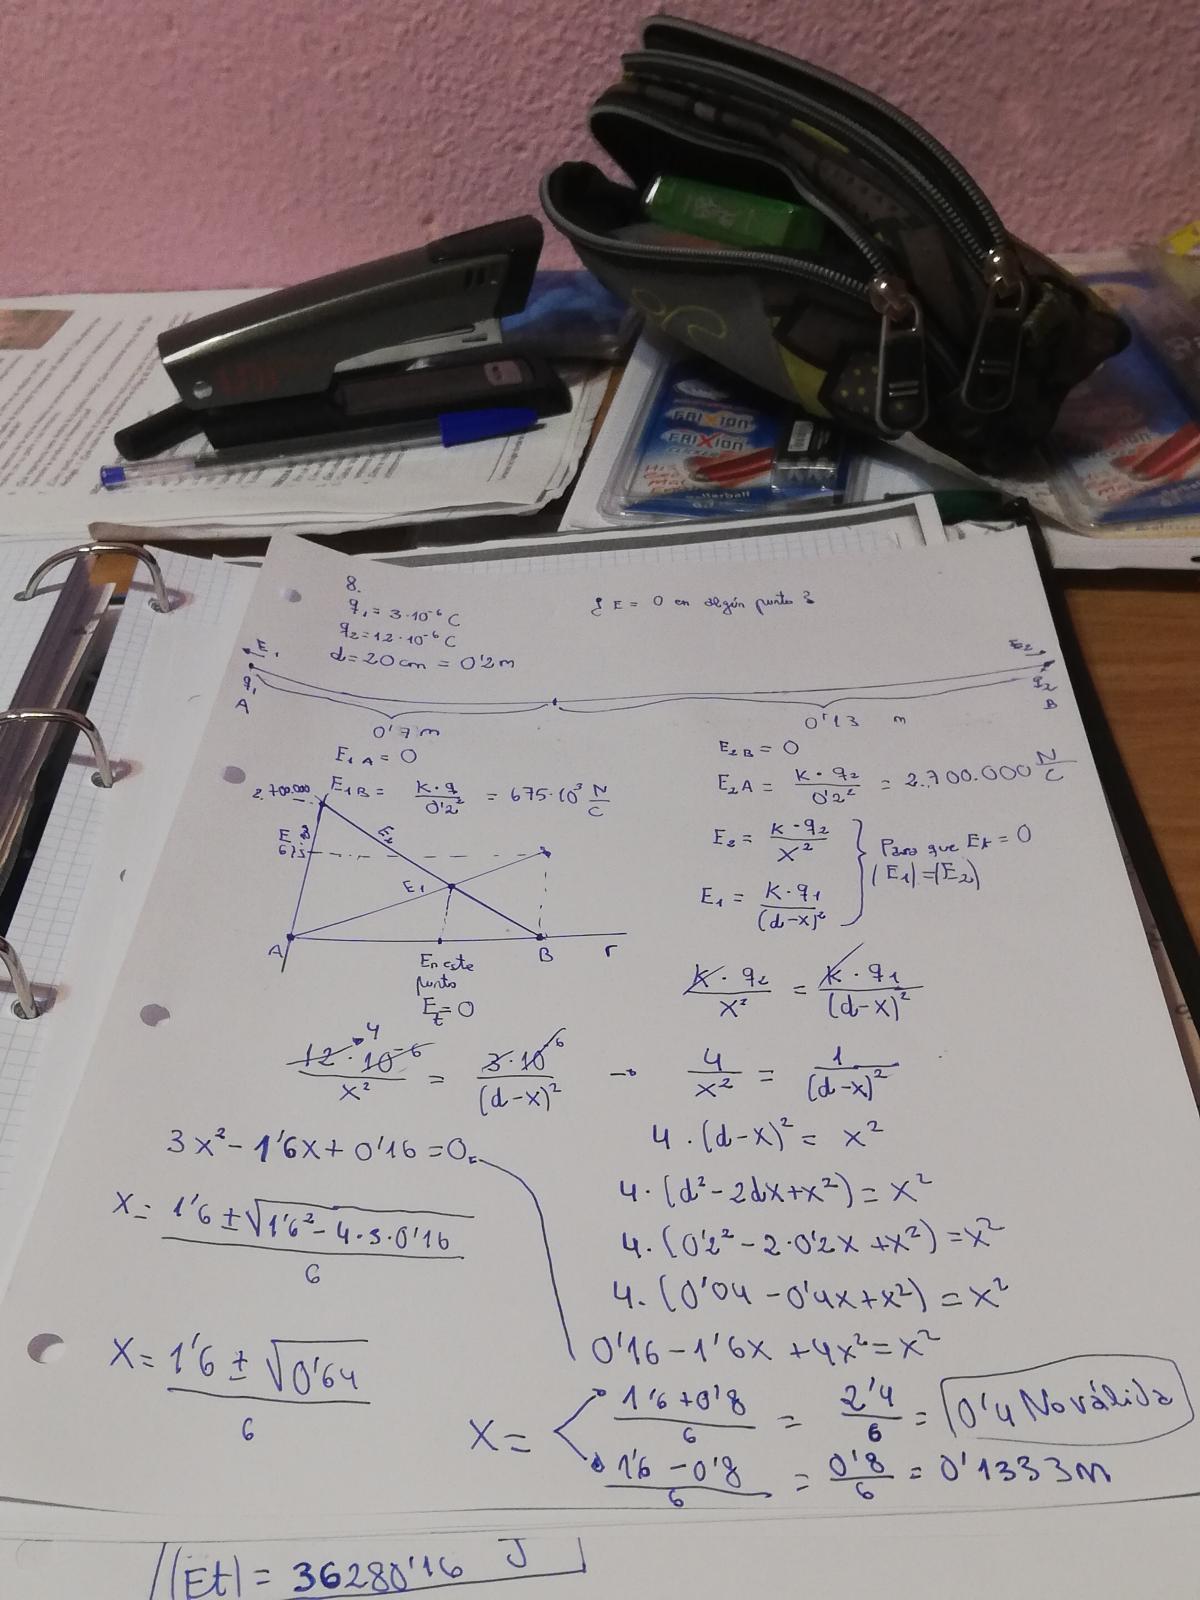 FRIXION
FRIXION
8.
q₁ = 3·10⁻⁶ C
q₂ = 12·10⁻⁶ C
d = 20 cm = 0'2 m
¿ E = 0 en algún punto ?
E₁
E₂
q₁
A
q₂
B
0'7 m
0'13 m
E₁ A = 0
E₁B = K·q / 0'2² = 675·10³ N/C
E₂ B = 0
E₂A = K·q₂ / 0'2² = 2.700.000 N/C
2.700.000
675
E₂
E₁
A
B
r
En este
punto
Et = 0
E₂ = K·q₂ / x²
E₁ = K·q₁ / (d-x)²
Para que Et = 0
|E₁| = |E₂|
K·q₂ / x² = K·q₁ / (d-x)²
4
12·10⁻⁶ / x² = 3·10⁻⁶ / (d-x)² → 4 / x² = 1 / (d-x)²
4·(d-x)² = x²
4·(d²-2dx+x²) = x²
4·(0'2²-2·0'2x+x²) = x²
4·(0'04-0'4x+x²) = x²
0'16-1'6x+4x² = x²
3x²-1'6x+0'16 = 0
x = 1'6 ± √1'6²-4·3·0'16 / 6
x = 1'6 ± √0'64 / 6
x = 1'6+0'8 / 6 = 2'4 / 6 = 0'4 No válida
1'6-0'8 / 6 = 0'8 / 6 = 0'1333 m
|Et| = 36280'16 J